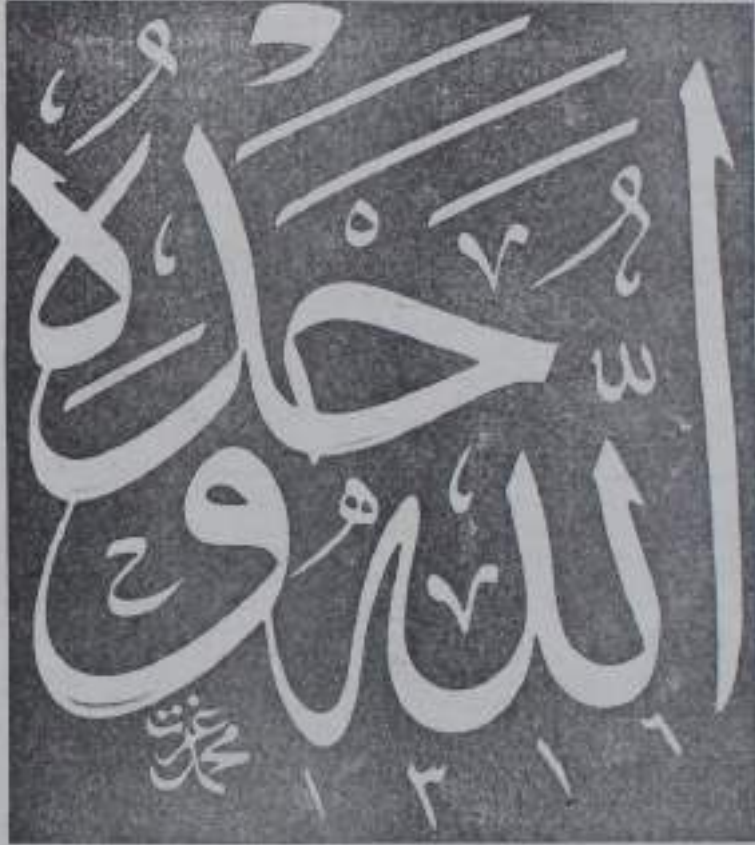 اللّٰهُ وَحْدَهُ
محمد عزت
١٣١٦